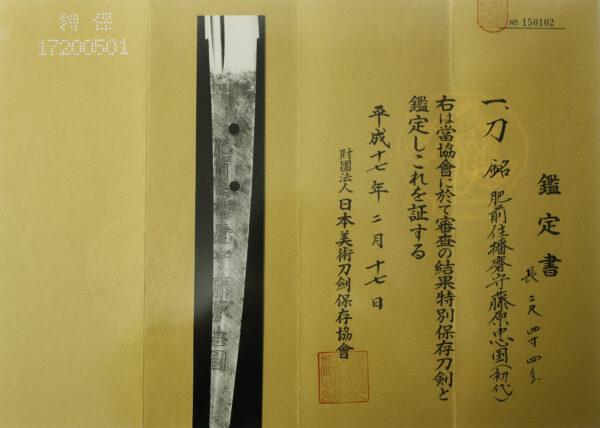 特保
17200501
№ 150102
鑑定書
一、刀 銘 肥前住播磨守藤原忠国(初代)
長二尺四寸四分
右は當協會に於て審査の結果特別保存刀剣と
鑑定しこれを証する
平成十七年二月十七日
財團法人日本美術刀剣保存協會